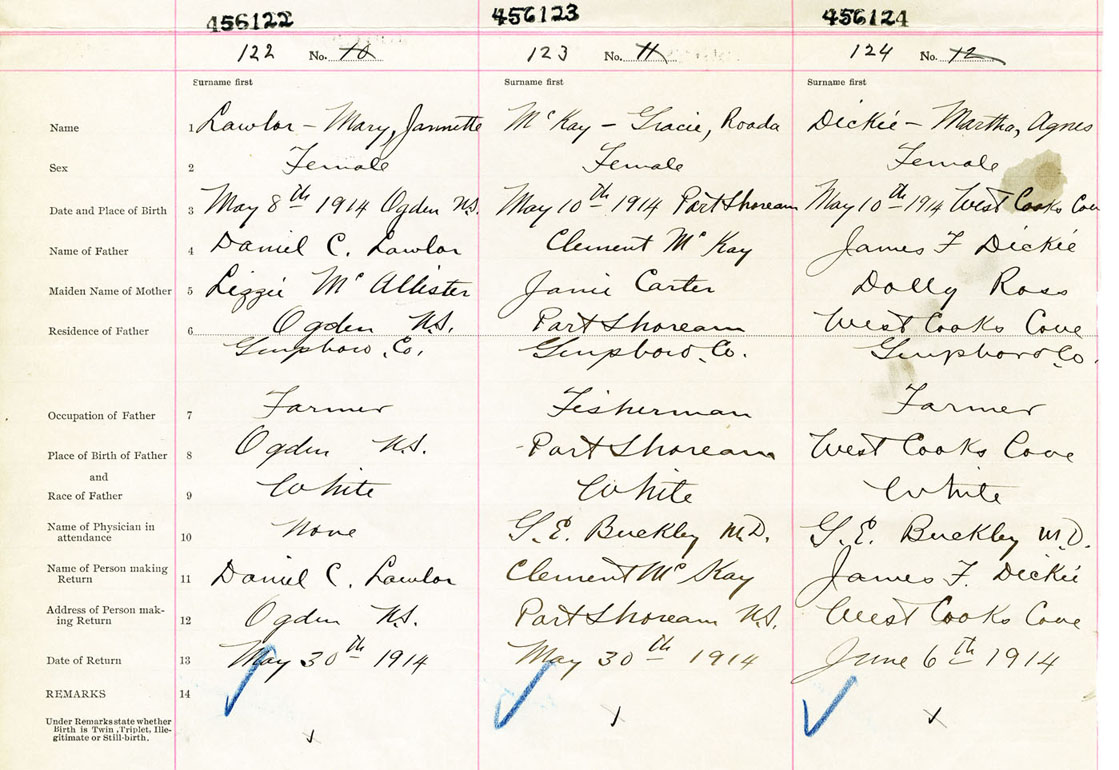 456122 456123 456124
122 No. 10 123 No. 11 124 No. 12
Surname first Surname first Surname first
Name 1 Lawlor - Mary, Jannette McKay - Gracie, Roada Dickie - Martha, Agnes
Sex 2 Female Female Female
Date and Place of Birth 3 May 8th 1914 Ogden N.S. May 10th 1914 Port Shoream May 10th 1914 West Cooks Cove
Name of Father 4 Daniel C. Lawlor Clement McKay James F Dickie
Maiden Name of Mother 5 Lizzie McAllister Janie Carter Dolly Ross
Residence of Father 6 Ogden N.S. Port Shoream West Cooks Cove
Guysboro, Co. Guysboro, Co. Guysboro Co.
Occupation of Father 7 Farmer Fisherman Farmer
Place of Birth of Father 8 Ogden N.S. Port Shoream West Cooks Cove
and
Race of Father 9 White White White
Name of Physician in
attendance 10 None G. E. Buckley M.D. G. E. Buckley M.D.
Name of Person making
Return 11 Daniel C. Lawlor Clement McKay James F. Dickie
Address of Person mak-
ing Return 12 Ogden N.S. Port Shoream N.S. West Cooks Cove
Date of Return 13 May 30th 1914 May 30th 1914 June 6th 1914
REMARKS 14
Under Remarks state whether
Birth is Twin, Triplet, Ille-
gitimate or Still-birth.